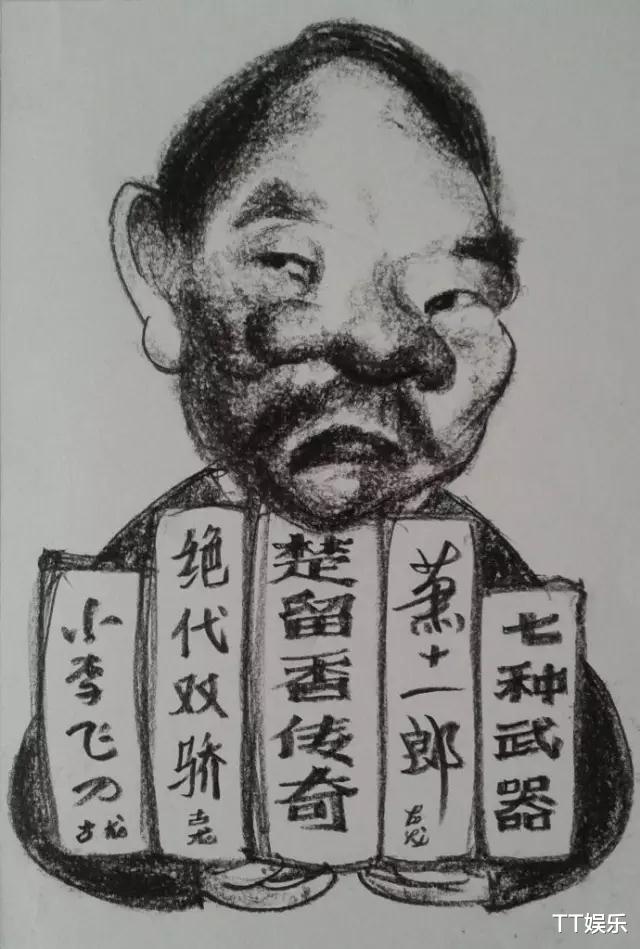 小李飞刀
古龙
绝代双骄
古龙
楚留香传奇
萧十一郎
古龙
七种武器
TT娱乐